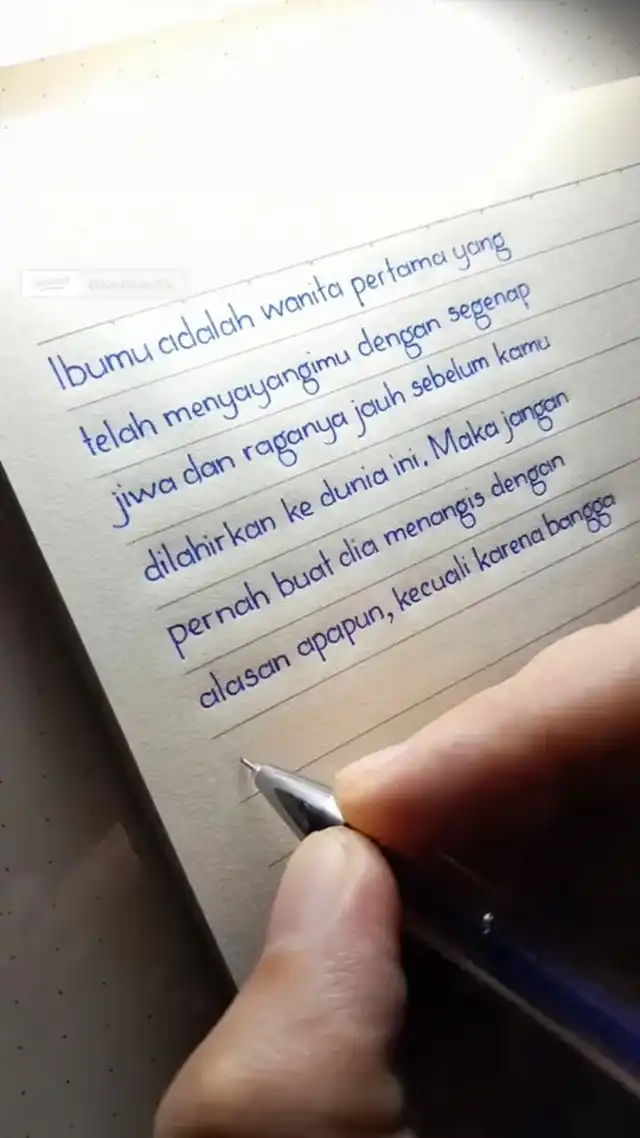 Ibumu adalah wanita pertama yang
telah menyayangimu dengan segenap
jiwa dan raganya jauh sebelum kamu
dilahirkan ke dunia ini. Maka jangan
pernah buat dia menangis dengan
alasan apapun, kecuali karena bangga